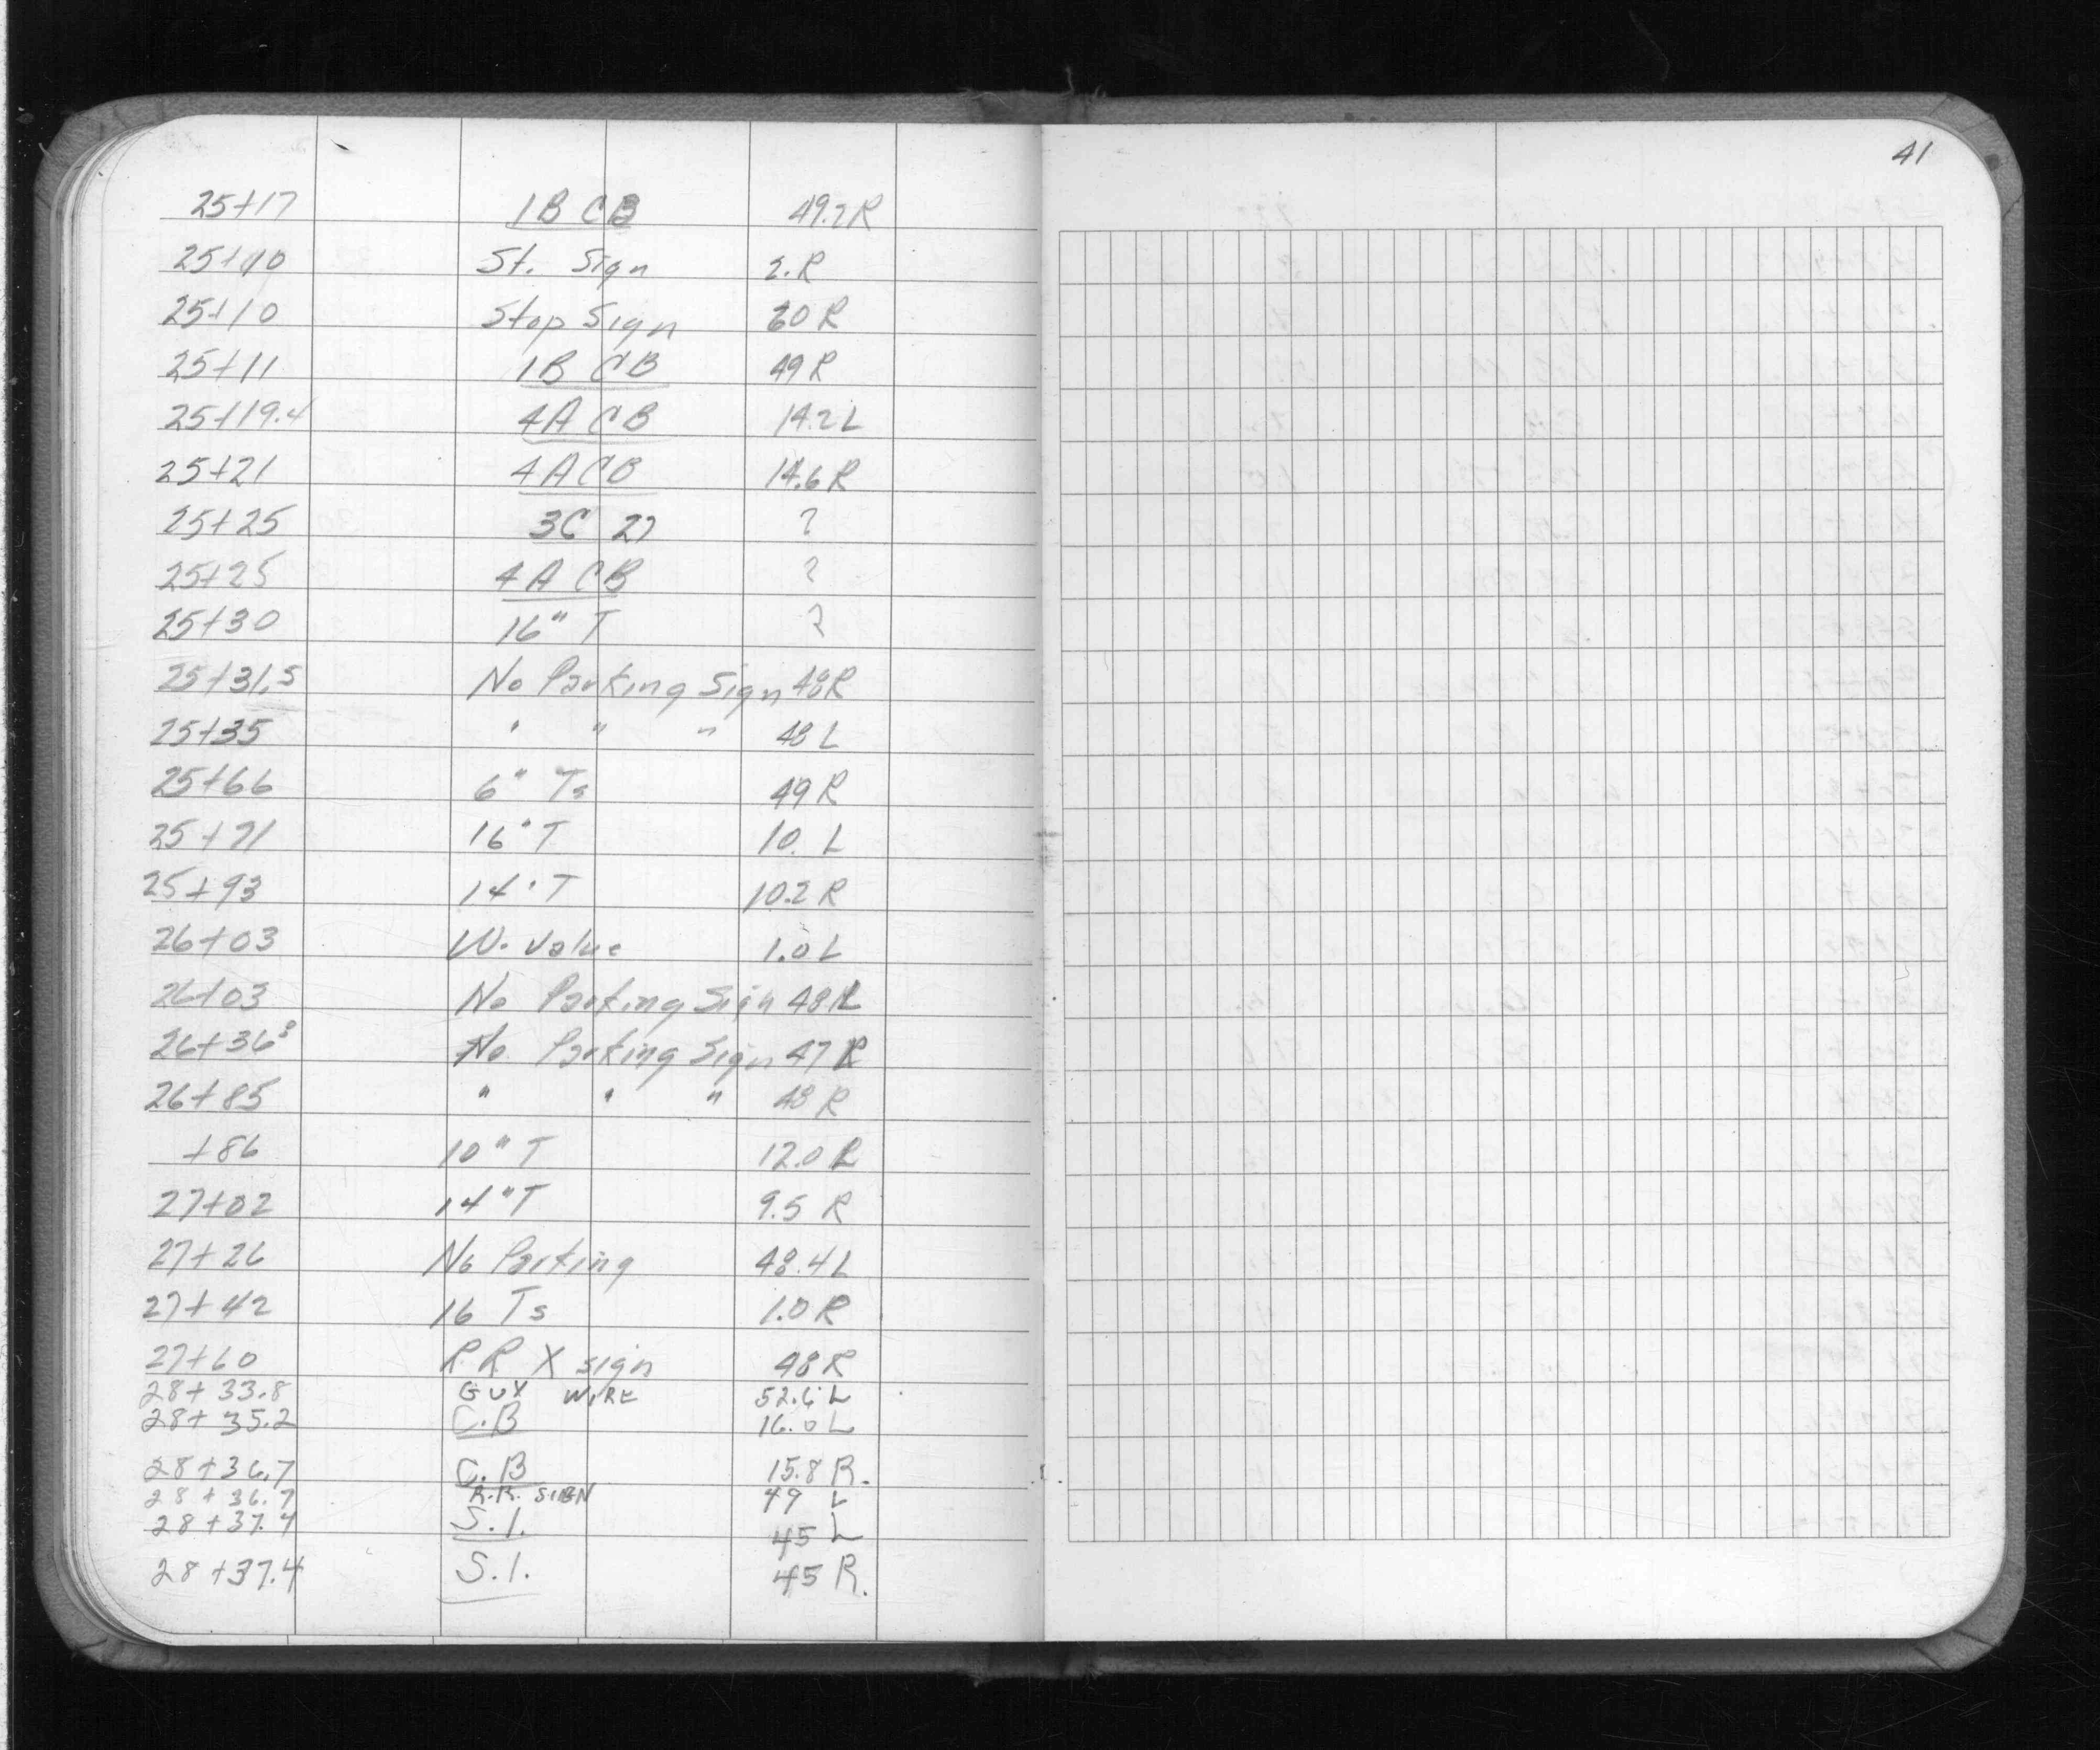 41
25+17 1B CB 49.2R
25+10 St. Sign 2.R
25+10 Stop Sign 30 R
25+11 1B CB 49 R
25+19.4 4A CB 14.2 L
25+21 4A CB 14.6 R
25+25 3C 27 ?
25+25 4A CB ?
25+30 16" T ?
25+31.5 No Parking Sign 48R
25+35 " " " 48 L
25+66 6" Ts 49 R
25+71 16" T 10. L
25+93 14" T 10.2 R
26+03 W. Valve 1.0 L
26+03 No Parking Sign 48 L
26+36⁸ No. Parking Sign 47 R
26+85 " " " 48 R
+86 10" T 12.0 R
27+02 14" T 9.5 R
27+26 No Parking 48.4 L
27+42 16 Ts 1.0 R
27+60 R.R X sign 48 R
28+33.8 GUY WIRE 52.6 L
28+35.2 C.B 16.0 L
28+36.7 C.B 15.8 R.
28+36.7 R.R. SIGN 49 L
28+37.4 S.I. 45 L
28+37.4 S.I. 45 R.